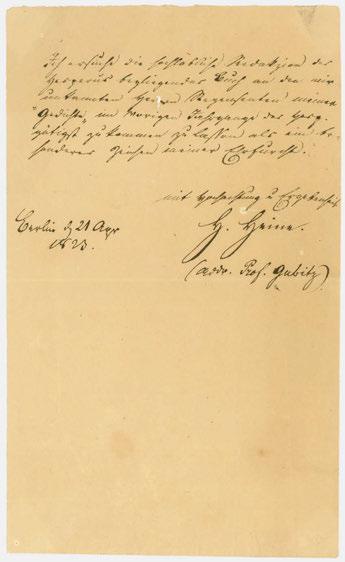 Ich ersuche die hochlöbliche Redakzion des
Hesperus beyliegendes Buch an den mir
unbekannten Herrn Rezensenten meiner
"Gedichte" im vorigen Jahrgange des Hesp.
gütigst zu kommen zu lassen als ein be-
sonderes Zeichen meiner Ehrfurcht.
mit Hochachtung u Ergebenheit
H. Heine.
Berlin d 21 Apr
1823.
(addr. Prof. Gubitz)